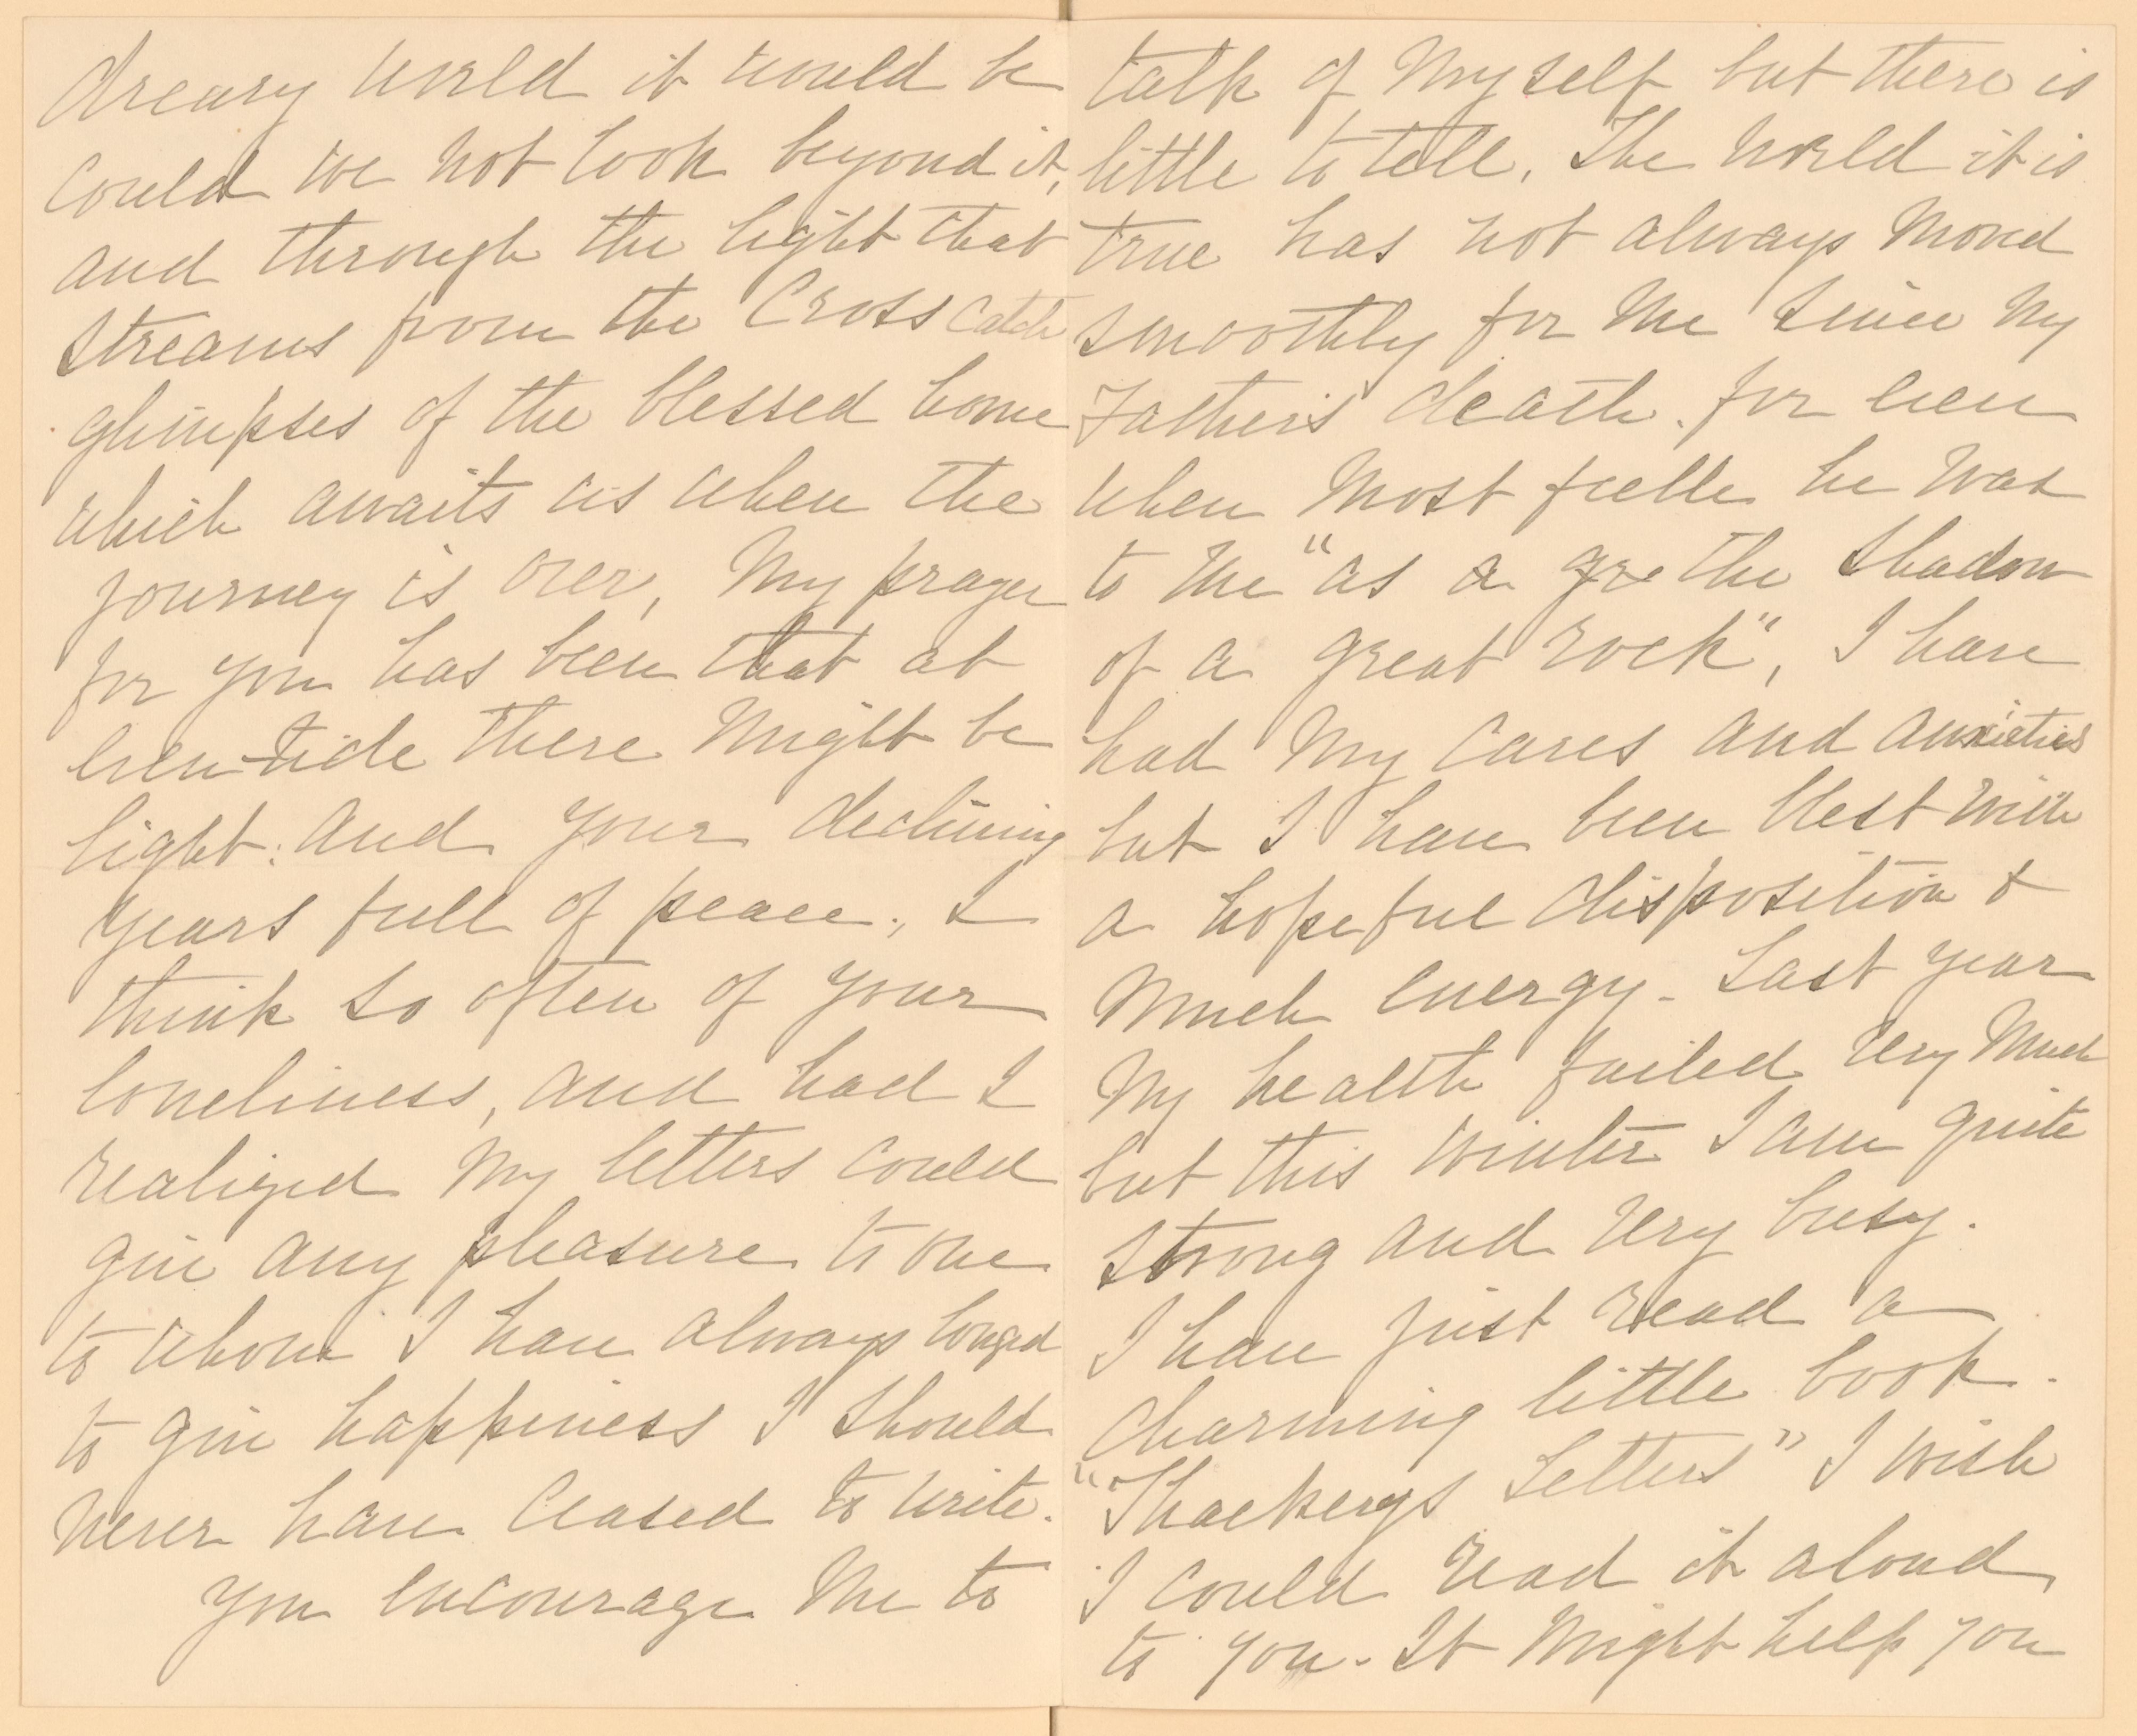 dreary world it would be
could we not look beyond it,
and through the light that
streams from the Cross catch
glimpses of the blessed home
which awaits us when the
journey is over, My prayer
for you has been that at
even-tide there might be
light: and your declining
years full of peace, I
think so often of your
loneliness, and had I
realized my letters could
give any pleasure to one
to whom I have always longed
to give happiness I should
never have ceased to write.
You encourage me to
talk of myself but there is
little to tell, The world it is
true has not always moved
smoothly for me since my
Father's death. for even
when most feeble he was
to me "as a gre the shadow
of a great rock", I have
had my cares and anxieties
but I have been blest with
a hopeful disposition &
much energy. Last year
my health failed very much
but this winter I am quite
strong and very busy.
I have just read a
charming little book.
"Thackerys Letters" I wish
I could read it aloud
to you. It might help you